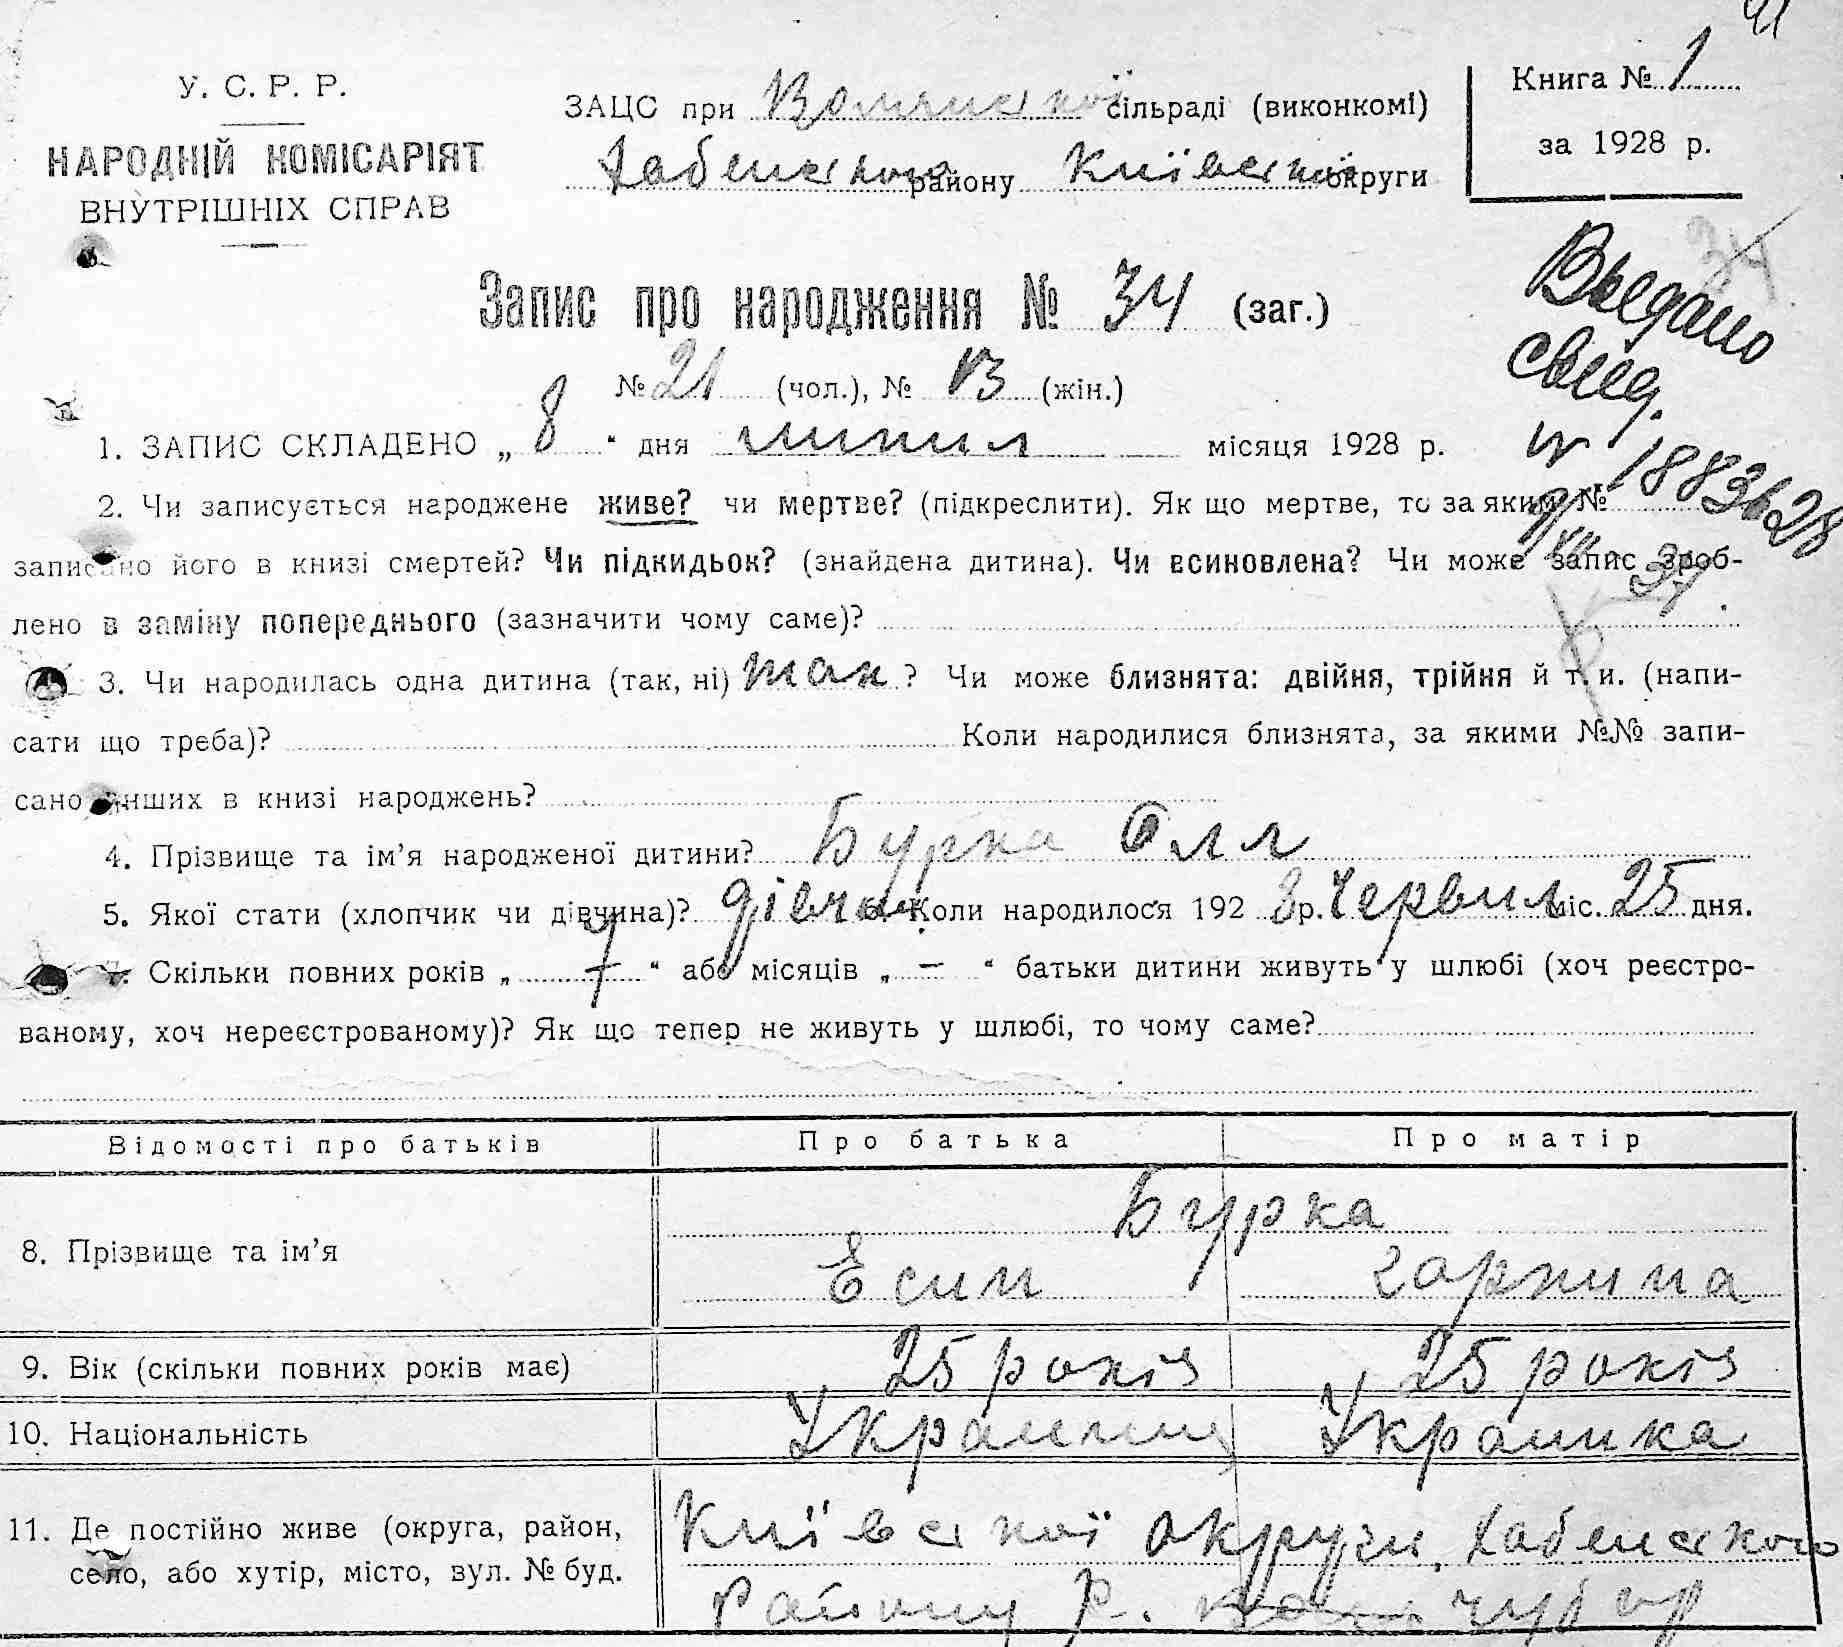 У. С. Р. Р.
НАРОДНІЙ КОМІСАРІЯТ
ВНУТРІШНІХ СПРАВ
ЗАЦС при сільраді (виконкомі)
Хабенського району Київської округи
Книга № 1
за 1928 р.
Запис про народження № 34 (заг.)
№ 21 (чол.), № 13 (жін.)
Выдано
свид.
№ 1883628
34
1. ЗАПИС СКЛАДЕНО „ 8 “ дня липня місяця 1928 р.
2. Чи записується народжене живе? чи мертве? (підкреслити). Як що мертве, то за яким №
записано його в книзі смертей? Чи підкидьок? (знайдена дитина). Чи всиновлена? Чи може запис зроб-
лено в заміну попереднього (зазначити чому саме)?
3. Чи народилась одна дитина (так, ні) так ? Чи може близнята: двійня, трійня й т. и. (напи-
сати що треба)? Коли народилися близнята, за якими №№ запи-
сано инших в книзі народжень?
4. Прізвище та ім’я народженої дитини? Бурка Оля
5. Якої стати (хлопчик чи дівчина)? дівчина Коли народилося 192 8 р. Червня міс. 25 дня.
7. Скільки повних років „ 7 “ або місяців „ — “ батьки дитини живуть у шлюбі (хоч реєстро-
ваному, хоч нереєстрованому)? Як що тепер не живуть у шлюбі, то чому саме?
Відомості про батьків Про батька Про матір
8. Прізвище та ім’я Бурка
Єсип Горпина
9. Вік (скільки повних років має) 25 років 25 років
10. Національність Українець Українка
11. Де постійно живе (округа, район, Київської округи, Хабенського
село, або хутір, місто, вул. № буд. Району